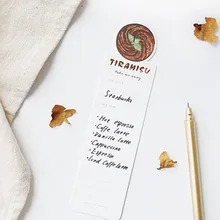 TIRAMISU
Starbucks
• Hot espresso
• Caffe latte
• Vanilla latte
• Cappuccino
• Espresso
• Iced Caffe latte